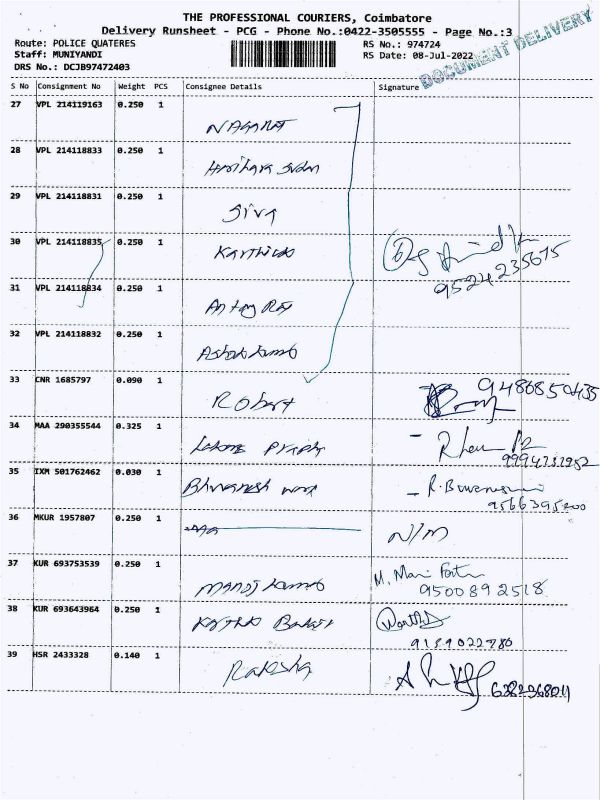 THE PROFESSIONAL COURIERS, Coimbatore
Delivery Runsheet - PCG - Phone No.:0422-3505555 - Page No.:3
Route: POLICE QUATERES
RS No.: 974724
Staff: MUNIYANDI
RS Date: 08-Jul-2022
DRS No.: DCJB97472403
DOCUMENT DELIVERY
S No Consignment No Weight PCS Consignee Details Signature
27 VPL 214119163 0.250 1
NAGARAJ
28 VPL 214118833 0.250 1
Harihara Sudan
29 VPL 214118831 0.250 1
Siva
30 VPL 214118835 0.250 1
Karthi
9524235615
31 VPL 214118834 0.250 1
Antony Raj
32 VPL 214118832 0.250 1
Ashok kumar
33 CNR 1685797 0.090 1
Robert
9486850435
34 MAA 290355544 0.325 1
9994737952
35 IXM 501762462 0.030 1
Bhuvanesh
9566395200
36 MKUR 1957807 0.250 1
N/M
37 KUR 693753539 0.250 1
MANOJ kumar
M. Mani
9500892518
38 KUR 693643964 0.250 1
9159022780
39 HSR 2433328 0.140 1
Rakesha
6382368011